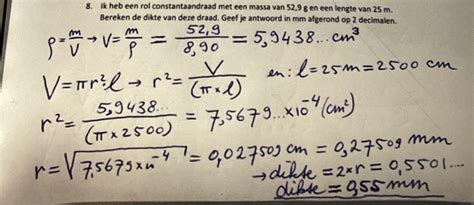 8. Ik heb een rol constantaandraad met een massa van 52,9 g en een lengte van 25 m.
Bereken de dikte van deze draad. Geef je antwoord in mm afgerond op 2 decimalen.
ρ = m/V → V = m/ρ = 52,9/8,90 = 5,9438... cm³
V = πr²·l → r² = V/(π×l) en: l = 25m = 2500 cm
r² = 5,9438.../(π×2500) = 7,5679...×10⁻⁴ (cm²)
r = √7,5679×10⁻⁴ = 0,027509 cm = 0,27509 mm
→ dikte = 2×r = 0,5501...
dikte = 0,55 mm